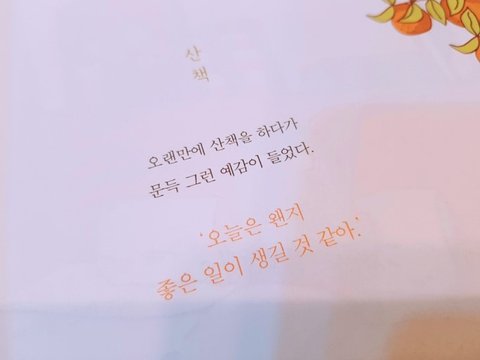 산
책
오랜만에 산책을 하다가
문득 그런 예감이 들었다.
'오늘은 왠지
좋은 일이 생길 것 같아.'